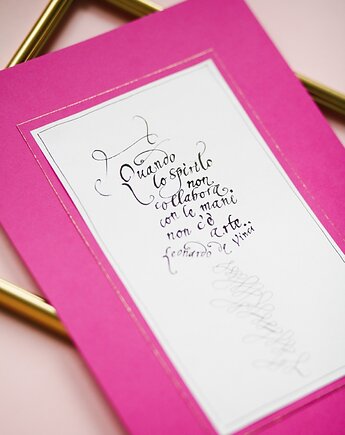 Quando
lo spirito
non
collabora
con le mani
non c'è
arte..
Leonardo da Vinci